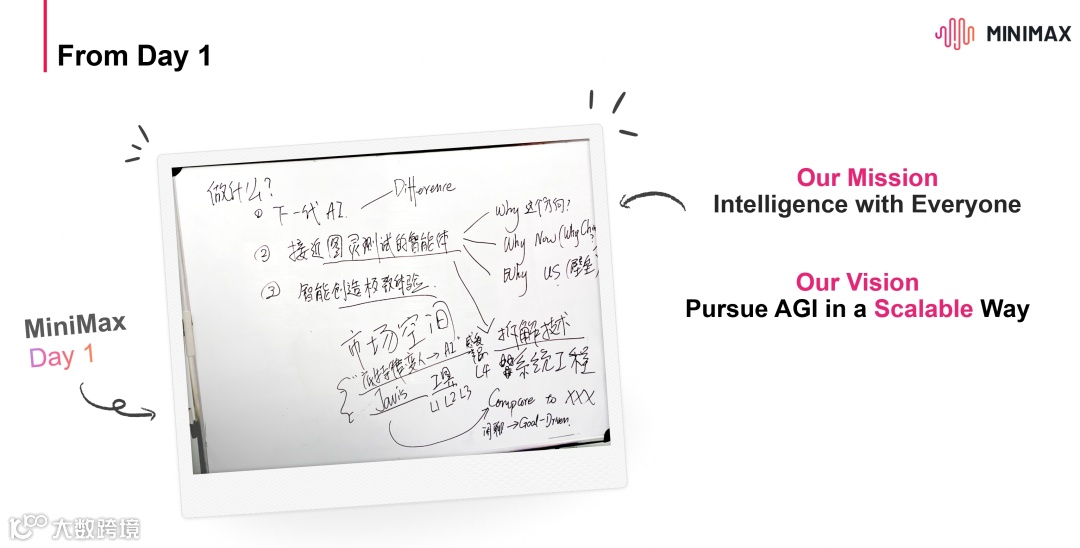 From Day 1
MINIMAX
做什么?
① 下一代 AI.
Difference
② 接近图灵测试的智能体
Why 这个方向?
Why Now (Why Cha
Why US (壁垒)
③ 智能创造极致体验.
市场空间
AI
L4
拆解技术
系统工程
Javis
工具
L1 L2 L3
Compare to XXX
闲聊→Goal-Driven.
MiniMax
Day 1
Our Mission
Intelligence with Everyone
Our Vision
Pursue AGI in a Scalable Way
大数跨境